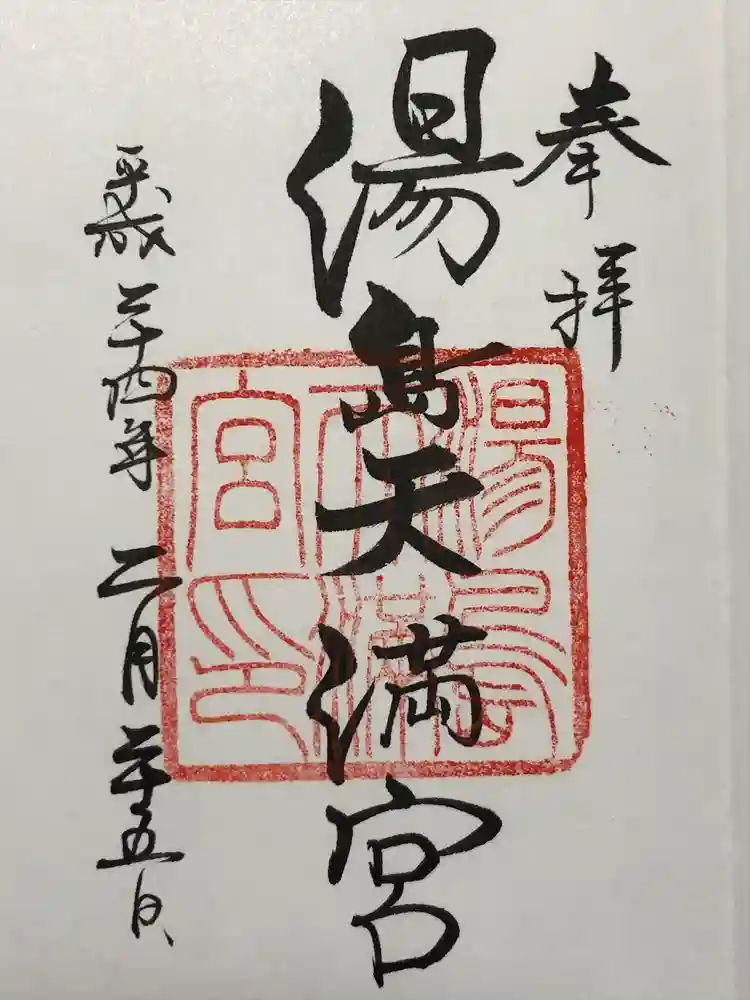 奉拝
湯島天満宮
湯島
天満
宮印
平成二十四年二月二十五日